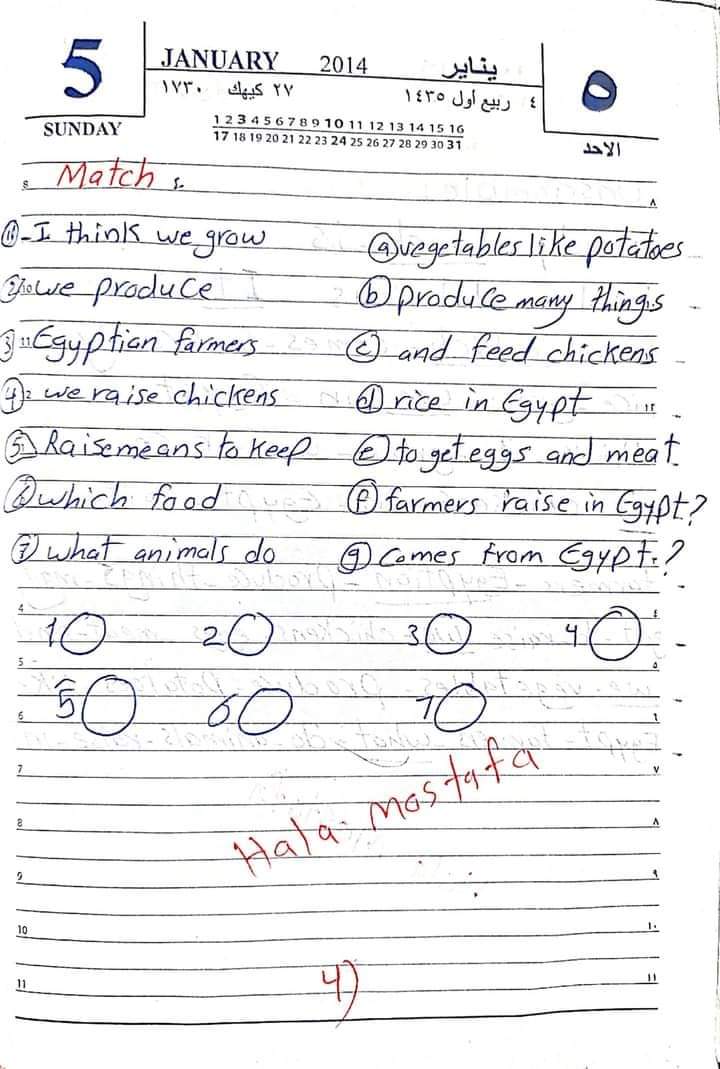 5
SUNDAY
JANUARY 2014 يناير
٢٧ كيهك ١٧٣٠ ٤ ربيع أول ١٤٣٥
1 2 3 4 5 6 7 8 9 10 11 12 13 14 15 16
17 18 19 20 21 22 23 24 25 26 27 28 29 30 31
٥
الاحد
8 Match :- ٨
1 - I think we grow ⓐ vegetables like potatoes
2 10 we produce ⓑ produce many things
3 11 Egyptian farmers ⓒ and feed chickens
4 12 we raise chickens ⓓ rice in Egypt ١٢
5 Raise means to keep ⓔ to get eggs and meat.
6 which food ⓕ farmers raise in Egypt?
7 what animals do ⓖ comes from Egypt.?
4 ٤
1 2 3 4
5 ٥
5 6 7
6 ٦
7 ٧
Hala. mostafa
8 ٨
9 ٩
10 ١٠
4)
11 ١١